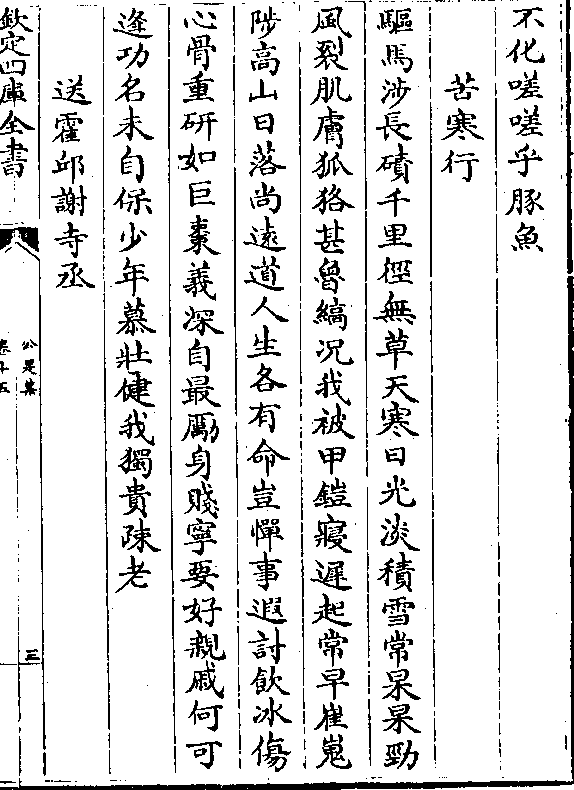 不化嗟嗟乎豚魚
苦寒行
驅馬涉長磧千里徑無草天寒日光淡積雪常杲杲勁
風裂肌膚狐狢甚魯縞况我被甲鎧寢遲起常早崔嵬
陟高山日落尚遠道人生各有命豈憚事遐討飲冰傷
心骨重研如巨棗義深自最勵身賤寧要好親戚何可
逢功名未自保少年慕壯健我獨貴陳老
送霍邱謝寺丞
欽定四庫全書
公是集
卷十五
三